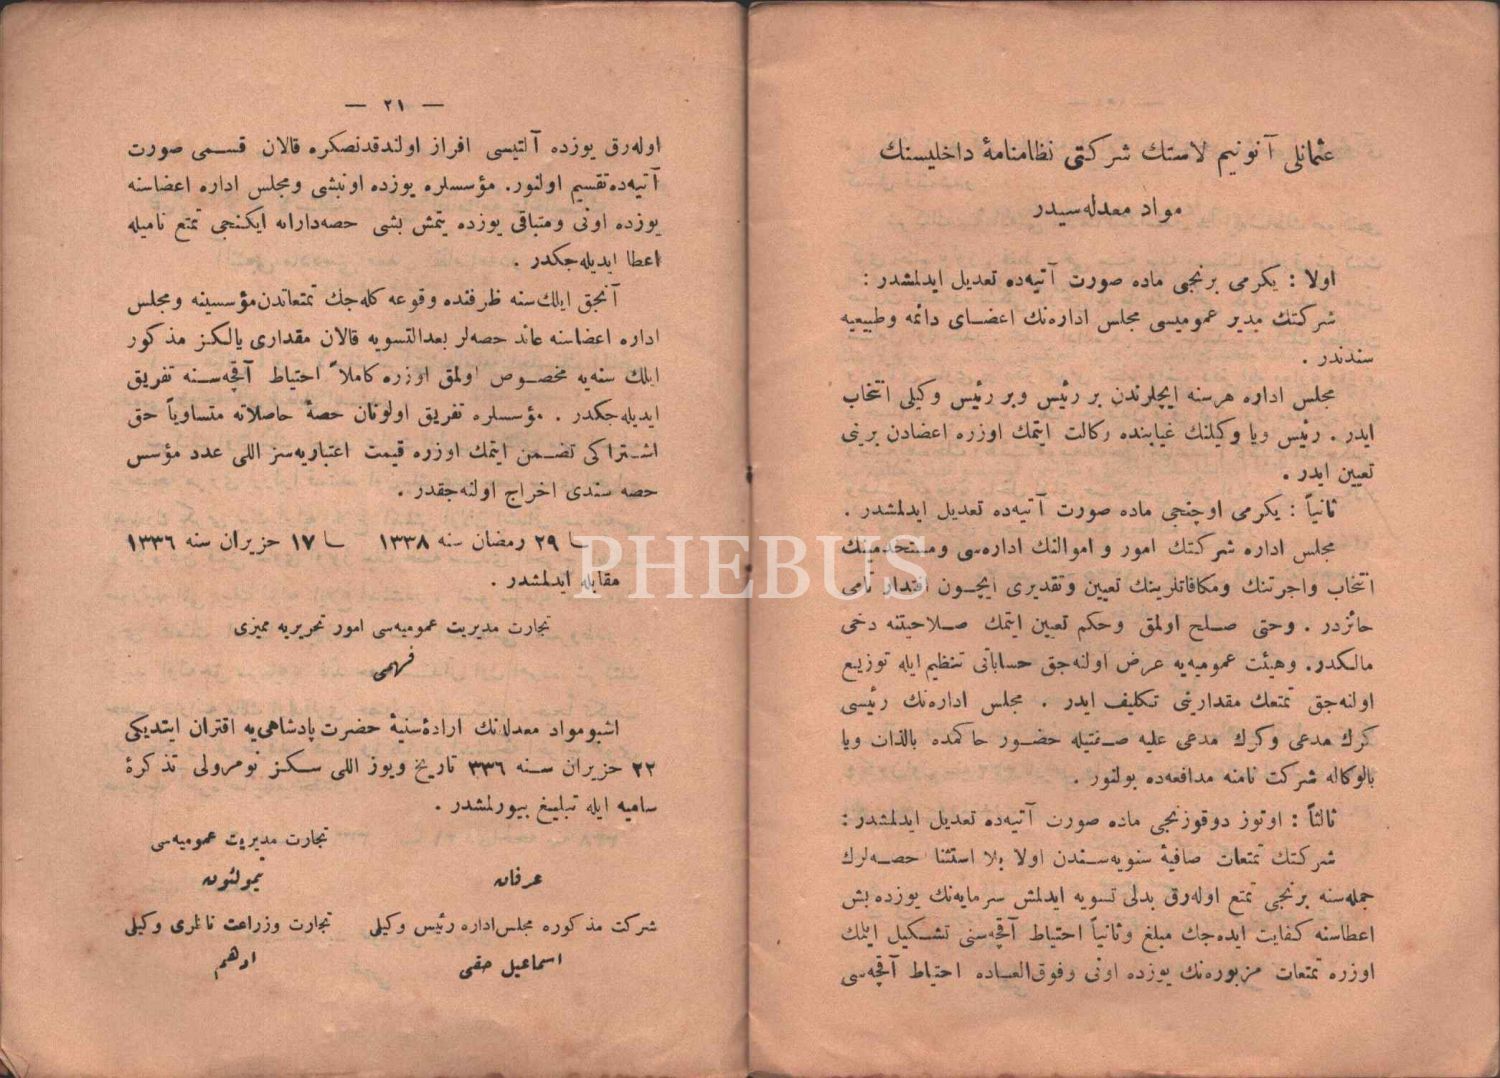 عثمانلى آنونيم لاستك شركتى نظامنامۀ داخليسنك
مواد معدله‌سيدر
اولا : يكرمى برنجى ماده صورت آتيه‌ده تعديل ايدلمشدر :
شركتك مدير عموميسى مجلس اداره‌نك اعضاى دائمه وطبيعيه
سندندر .
مجلس اداره هرسنه ايچلرندن بر رئيس وبر رئيس وكيلى انتخاب
ايدر . رئيس ويا وكيلنك غيابنده ركالت ايتمك اوزره اعضادن برينى
تعيين ايدر .
ثانياً : يكرمى اوچنجى ماده صورت آتيه‌ده تعديل ايدلمشدر .
مجلس اداره شركتك امور و اموالنك اداره‌سى ومستخدمينك
انتخاب واجرتنك ومكافاتلرينك تعيين وتقديرى ايچون اقتدار تامى
حائزدر . وحتى صلح اولمق وحكم تعيين ايتمك صلاحيتنه دخى
مالكدر. وهيئت عموميه‌يه عرض اولنه‌جق حساباتى تنظيم ايله توزيع
اولنه‌جق تمتعك مقدارينى تكليف ايدر . مجلس اداره‌نك رئيسى
كرك مدعى وكرك مدعى عليه صفتيله حضور حاكمده بالذات ويا
بالوكاله شركت نامنه مدافعه‌ده بولنور .
ثالثاً : اوتوز دوقوزنجى ماده صورت آتيه‌ده تعديل ايدلمشدر :
شركتك تمتعات صافيۀ سنويه‌سندن اولا بلا استثنا حصه‌لرك
جمله‌سنه برنجى تمتع اوله‌رق بدلى تسويه ايدلمش سرمايه‌نك يوزده بش
اعطاسنه كفايت ايده‌جك مبلغ وثانياً احتياط آقچه‌سنى تشكيل ايتمك
اوزره تمتعات مزبوره‌نك يوزده اونى وفوق‌العاده احتياط آقچه‌سى
— ٢١ —
اوله‌رق يوزده آلتيسى افراز اولندقدنصكره قالان قسمى صورت
آتيه‌ده تقسيم اولنور. مؤسسلره يوزده اونبشى ومجلس اداره اعضاسنه
يوزده اونى ومتباقى يوزده يتمش بشى حصه‌دارانه ايكنجى تمتع ناميله
اعطا ايديله‌جكدر .
آنجق ايلك‌سنه ظرفنده وقوعه كله‌جك تمتعاتدن مؤسسينه ومجلس
اداره اعضاسنه عائد حصه‌لر بعدالتسويه قالان مقدارى يالكز مذكور
ايلك سنه‌يه مخصوص اولمق اوزره كاملاً احتياط آقچه‌سنه تفريق
ايديله‌جكدر . مؤسسلره تفريق اولونان حصۀ حاصلاته متساوياً حق
اشتراكى تضمن ايتمك اوزره قيمت اعتباريه‌سز اللى عدد مؤسس
حصه سندى اخراج اولنه‌جقدر .
٢٩ رمضان سنه ١٣٣٨ ١٧ حزيران سنه ١٣٣٦
مقابله ايدلمشدر .
تجارت مديريت عموميه‌سى امور تحريريه مميزى
فهمى
اشبو مواد معدله‌نك ارادۀ سنيۀ حضرت پادشاهى‌يه اقتران ايتديكى
٢٢ حزيران سنه ٣٣٦ تاريخ ويوز اللى سكز نومرولى تذكرۀ
ساميه ايله تبليغ بيورلمشدر .
تجارت مديريت عموميه‌سى
عرفان
شركت مذكوره مجلس اداره رئيس وكيلى تجارت وزراعت ناظرى وكيلى
اسماعيل حقى
PHEBUS